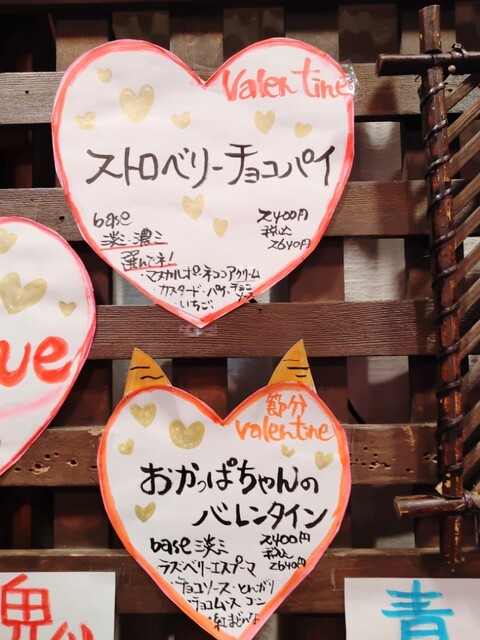 Valentine
ストロベリーチョコパイ
base
淡ミ 濃ミ
選んでネ!
2400円
税込
2640円
・マスカルポーネコンアクリーム
・カスタード・パイ・チョコソース
・いちご
ue
節分
valentine
おかっぱちゃんの
バレンタイン
base 淡ミ
2400円
税込
2640円
ラズベリーエスプーマ
・チョコソース・とんがり
チョコムース コーン
・紅ほどんな
鬼
青